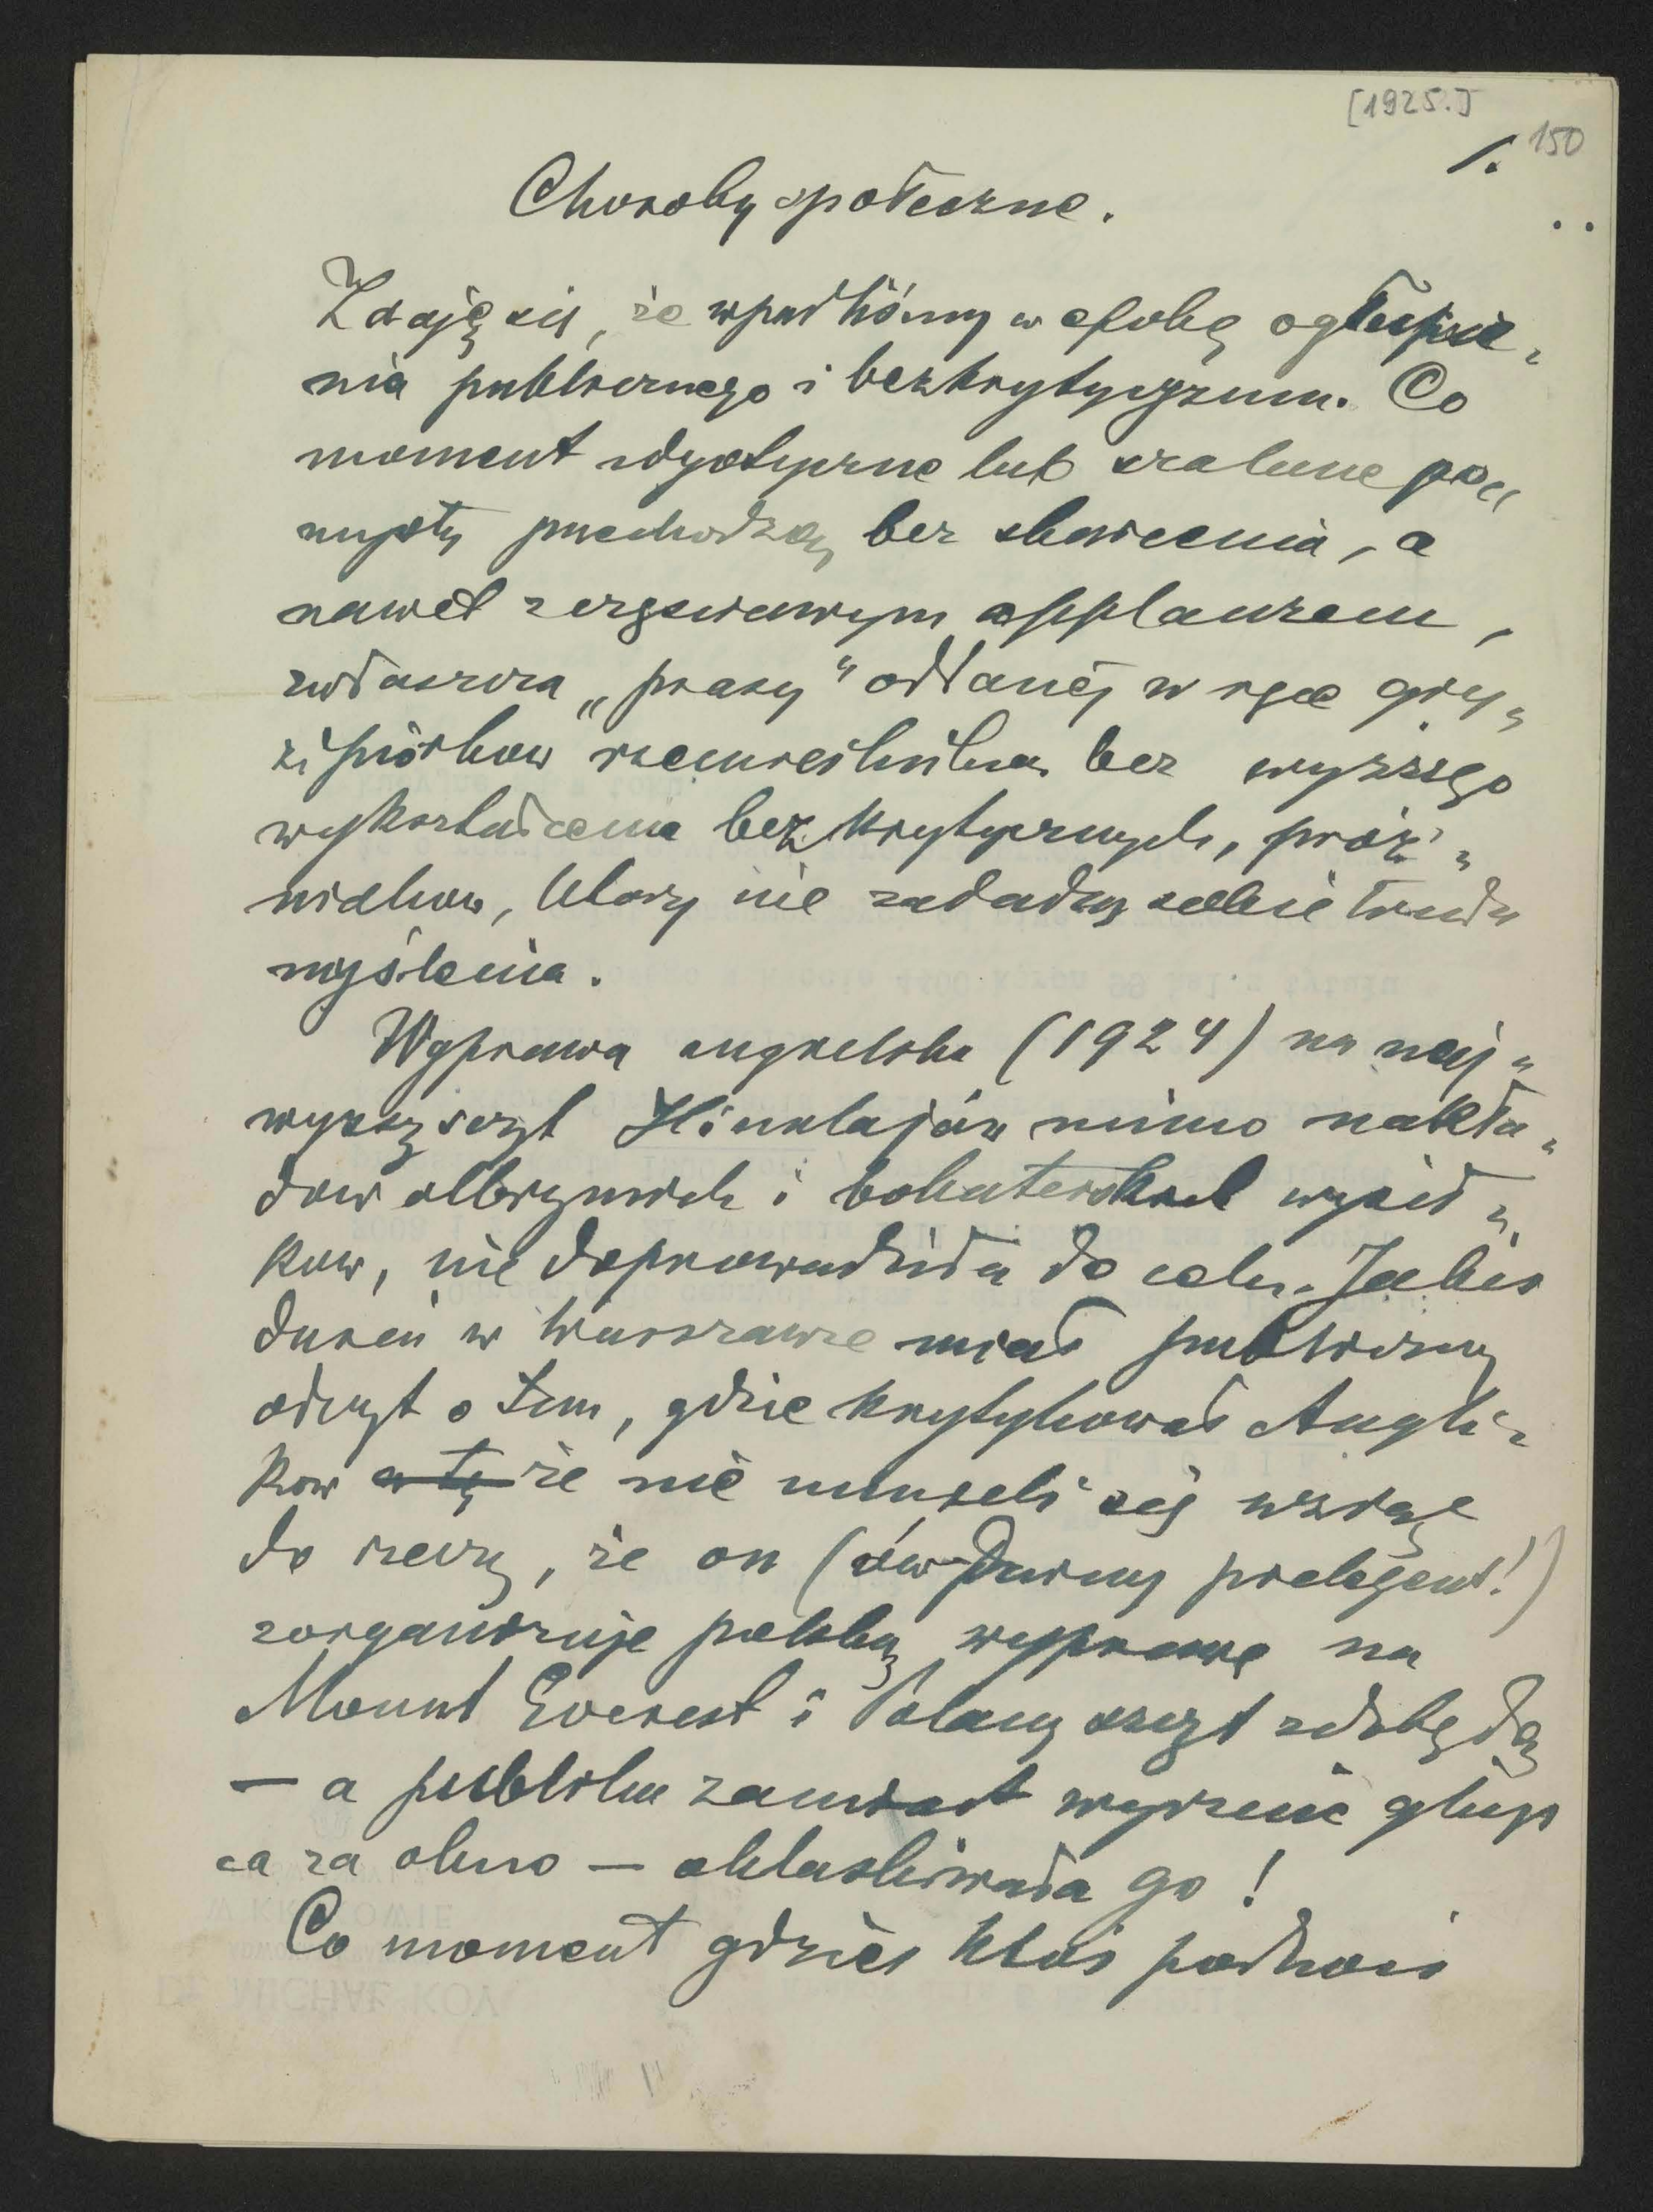 [1925.]
1. 150
Choroby społeczne.
Zdaję się, że wpadliśmy w epokę ogłupie„
nia publicznego i bezkrytycyzmu. Co
moment idyotyczne lub szalone po„
mysły przechodzą bez skarcenia, a
nawet z applauzem,
zwłaszcza „prasy" oddanej w ręce gry„
zipiórkow rzemieślnikow bez wyższego
wykształcenia bezkrytycznych, próż„
niakow, ktorzy nie zadadzą sobie trudu
myślenia.
Wyprawa angielska (1924) na naj„
wyższy szczyt Himalajów mimo nakła„
dow olbrzymich i bohaterskich wysił„
kow, nie doprowadziła do celu. Jakiś
dureń w Warszawie miał publiczny
odczyt o tem, gdzie krytykował Angli„
kow a tę że nie umieli się wziąć
do rzeczy, że on (ów durny prelegent!)
zorganizuje polską wyprawę na
Mount Everest i Polacy szczyt zdobędą
— a publika zamiast wyrzucić głup
ca za okno — oklaskiwała go!
Co moment gdzieś ktoś podnosi